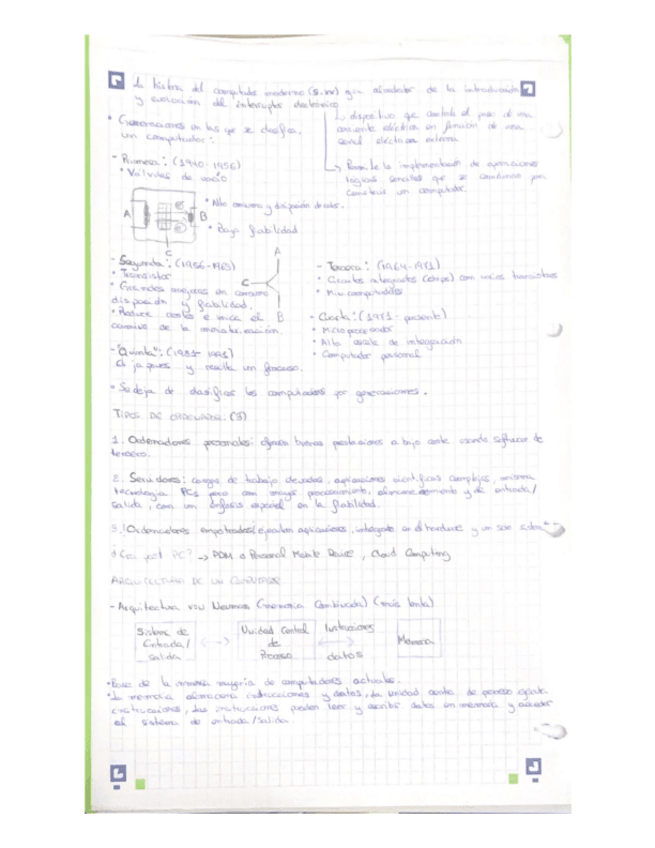 La historia del computador moderno (s.XX) gira alrededor de la introducción
y evolución del interruptor electrónico
↳ dispositivo que controla el paso de una
corriente eléctrica en función de una
señal eléctrica externa
↳ Permite la implementación de operaciones
lógicas sencillas que se combinan para
construir un computador.
• Generaciones en las que se clasifica
un computador:
- Primera: (1940-1956)
• Válvulas de vacío
A B C
• Alto consumo y disipación de calor.
• Baja fiabilidad
- Segunda: (1956-1963)
• Transistor
• Grandes mejoras en consumo
disipación y fiabilidad.
• Reduce costes e inicia el
camino de la miniaturización.
A
C
B
- Tercera: (1964-1971)
• Circuitos integrados (chips) con varios transistores
• Minicomputadores
- Cuarta: (1971-presente)
• Microprocesador
• Alta escala de integración
• Computador personal
- "Quinta": (1981-1991)
japoneses y resulta un fracaso.
• Se deja de clasificar los computadores por generaciones.
TIPOS DE ORDENADOR: (3)
1. Ordenadores personales: ofrecen buenas prestaciones a bajo coste usando software de
terceros.
2. Servidores: cargas de trabajo elevadas, aplicaciones científicas complejas, misma
tecnología PCs pero con mayor procesamiento, almacenamiento y de entrada/
salida, con un énfasis especial en la fiabilidad.
3. Ordenadores empotrados: ejecutan aplicaciones, integrado en el hardware y un solo sistema
post PC? → PDM o Personal Mobile Device, Cloud Computing
ARQUITECTURA DE UN COMPUTADOR
- Arquitectura von Neumann (memoria combinada) (más lenta)
Sistema de
Entrada/
salida
Unidad Central
de
Proceso
Instrucciones
datos
Memoria
• Base de la inmensa mayoría de computadores actuales.
• La memoria almacena instrucciones y datos, la unidad central de proceso ejecuta
instrucciones, las instrucciones pueden leer y escribir datos en memoria y acceder
al sistema de entrada/salida.